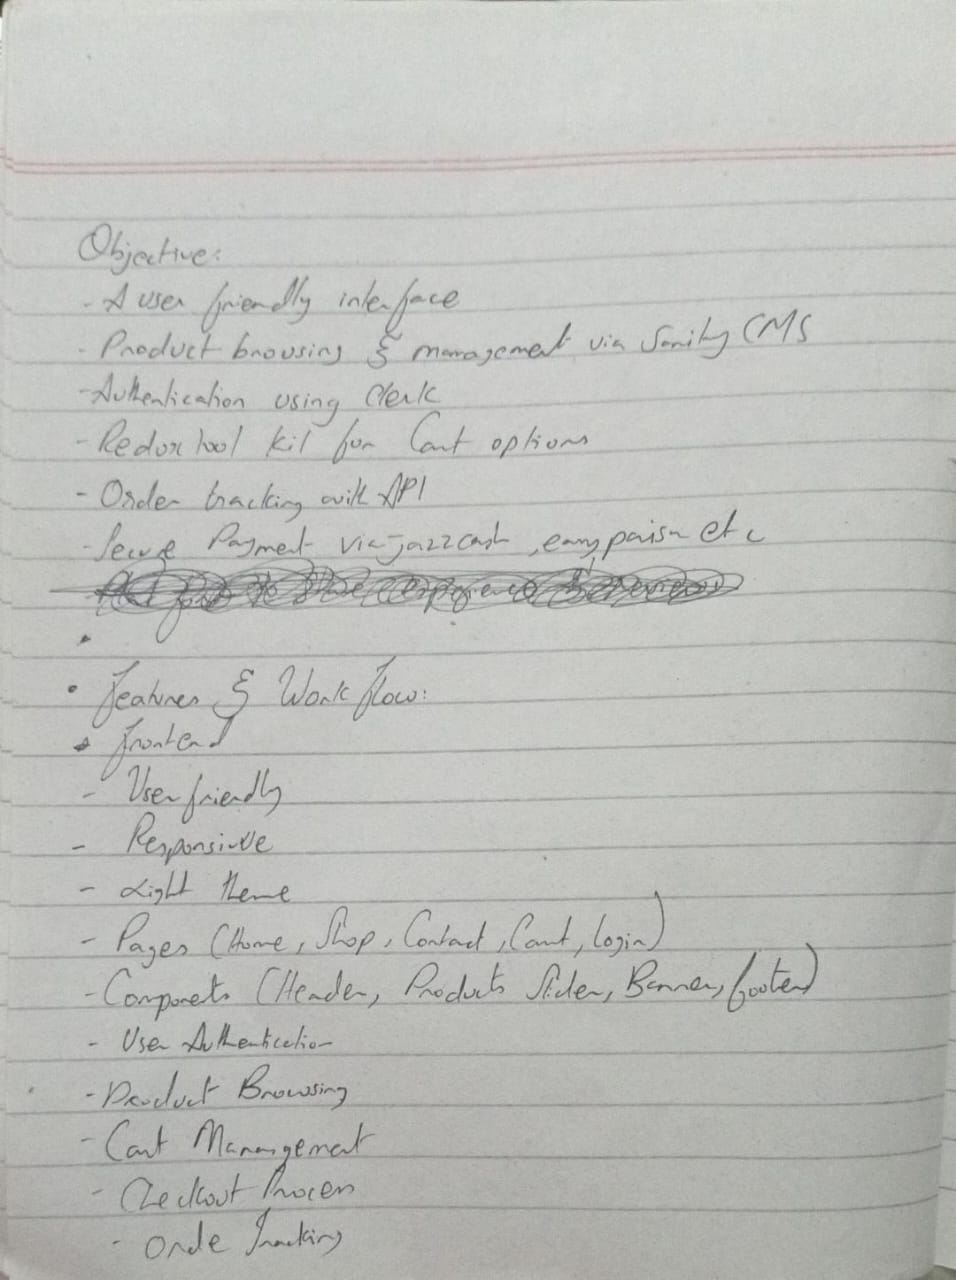 Objective:
- A user friendly interface
- Product browsing & management via Sanity CMS
- Authentication using Clerk
- Redux tool kit for Cart options
- Order tracking with API
- Secure Payment via jazzcash, easypaisa etc
• Features & Work flow:
• Frontend
- User friendly
- Responsive
- Light theme
- Pages (Home, Shop, Contact, Cart, login)
- Componets (Header, Products Slider, Banner, footer)
- User Authentication
- Product Browsing
- Cart Management
- Checkout Process
- Orde Tracking